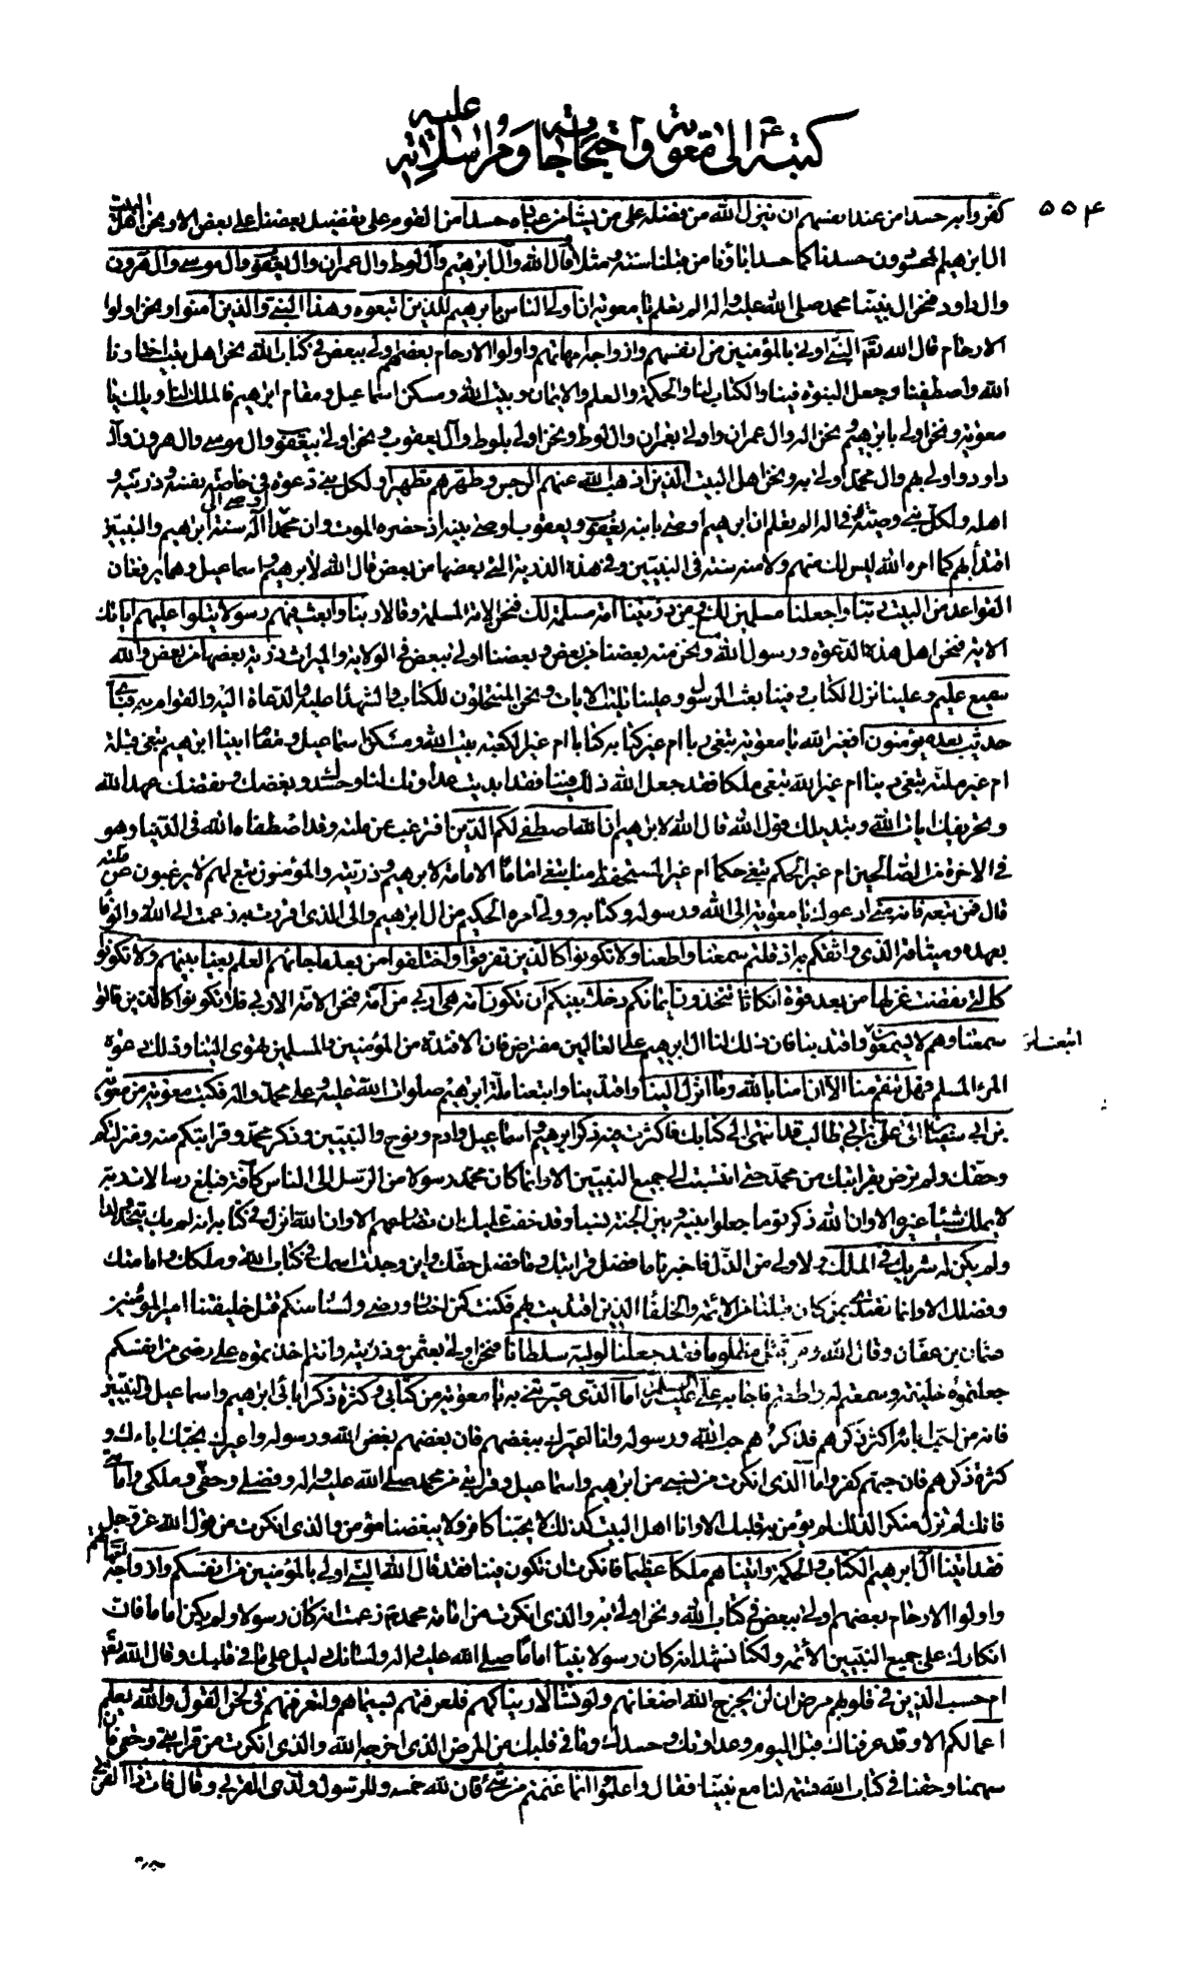 كتبه ع الى معوية واحتجاجاته عليه ومراسلاته
٥٥٤
كفروا به حسدا من عند انفسهم ان ينزل الله من فضله على من يشاء من عباده حسدا من القوم على تفضيل بعضنا على بعض الا ونحن اهل البيت
ال ابرهيم المحسودون حسدنا كما حسد اباؤنا من قبلنا سنة ومثلا قال الله وآل ابرهيم وآل لوط وال عمران وال يعقوب وال موسى وال هرون
وال داود فنحن ال نبينا محمد صلى الله عليه واله الم تعلم يا معوية ان اولى الناس بابرهيم للذين اتبعوه وهذا النبي والذين آمنوا ونحن اولوا
الارحام قال الله تعالى النبي اولى بالمؤمنين من انفسهم وازواجه امهاتهم واولوا الارحام بعضهم اولى ببعض في كتاب الله نحن اهل بيت اختارنا
الله واصطفينا وجعل النبوة فينا والكتاب لنا والحكمة والعلم والايمان وبيت الله ومسكن اسماعيل ومقام ابرهيم فالملك لنا ويلك يا
معوية ونحن اولى بابرهيم ونحن اله وال عمران واولى بعمران وال لوط ونحن اولى بلوط وآل يعقوب ونحن اولى بيعقوب وال موسى وال هرون وآل
داود واولى بهم وال محمد اولى به ونحن اهل البيت الذين اذهب الله عنهم الرجس وطهرهم تطهيرا ولكل نبي دعوة في خاصة نفسه وذريته و
اهله ولكل نبي وصية في اله الم تعلم ان ابرهيم اوصى بابنه يعقوب ويعقوب اوصى بنيه اذ حضره الموت وان محمدا اوصى الى آله سنة ابرهيم والنبيين
اقتداء بهم كما امره الله ليس لك منهم ولا منه سنة في النبيين وفي هذه الذرية التي بعضها من بعض قال الله لابرهيم واسماعيل وهما يرفعان
القواعد من البيت ربنا واجعلنا مسلمين لك ومن ذريتنا امة مسلمة لك فنحن الامة المسلمة وقالا ربنا وابعث فيهم رسولا يتلوا عليهم اياتك
الاية فنحن اهل هذه الدعوة ورسول الله منا ونحن منه بعضنا من بعض وبعضنا اولى ببعض في الولاية والميراث ذرية بعضها من بعض والله
سميع عليم وعلينا نزل الكتاب وفينا بعث الرسول وعلينا تليت الايات ونحن المنتحلون للكتاب والشهداء عليه والدعاة اليه والقوام به فبأي
حديث بعده يؤمنون افغير الله يا معوية تبتغي ربا ام غير كتابه كتابا ام غير الكعبة بيت الله ومسكن اسماعيل ومقام ابينا ابرهيم تبغي قبلة
ام غير ملته تبغي دينا ام غير الله تبتغي ملكا فقد جعل الله ذلك فينا فقد ابديت عداوتك لنا وحسدك وبغضك ونقضك عهد الله
وتحريفك ايات الله وتبديلك قول الله قال الله لابرهيم ان الله اصطفى لكم الدين افترغب عن ملته وقد اصطفاه الله في الدنيا وهو
في الاخرة من الصالحين ام غير الحكم تبغي حكما ام غير المستحفظ منا تبتغي اماما الامامة لابرهيم وذريته والمؤمنون تبع لهم لا يرغبون عن ملته
قال فمن تبعه فانه مني ادعوك يا معوية الى الله ورسوله وكتابه وولي امره الحكيم من ال ابرهيم والى الذي اقررت به زعمت الى الله والوفا
بعهده وميثاقه الذي واثقكم به اذ قلتم سمعنا واطعنا ولا تكونوا كالذين تفرقوا واختلفوا من بعد ما جائهم العلم بغيا بينهم ولا تكونوا
كالتي نقضت غزلها من بعد قوة انكاثا تتخذون ايمانكم دخلا بينكم ان تكون امة هي اربى من امة فنحن الامة الاربى فلا تكونوا كالذين قالوا
سمعنا وهم لا يسمعون اتبعنا واقتد بنا فان ذلك لنا ال ابرهيم على العالمين مفترض فان الافئدة من المؤمنين والمسلمين تهوى الينا وذلك دعوة
المرء المسلم فهل تنقم منا الا ان امنا بالله وما انزل الينا واقتدينا واتبعنا ملة ابرهيم صلوات الله عليه وعلى محمد واله فكتب معوية من معوية
بن ابي سفيان الى علي بن ابي طالب قد انتهى الي كتابك فاكثرت فيه ذكر ابرهيم واسماعيل وادم ونوح والنبيين وذكر محمد وقرابتكم منه ومنزلتكم
وحقك ولم ترض بقرابتك من محمد حتى انتسبت الى جميع النبيين الا وانما كان محمد رسولا من الرسل الى الناس كافة فبلغ رسالات ربه
لا يملك شيئا غيره الا وان الله ذكر قوما جعلوا بينه وبين الجنة نسبا وقد خفت عليك ان تضاهيهم الا وان الله انزل في كتابه انه لم يك يتخذ ولدا
ولم يكن له شريك في الملك ولا ولي من الذل فاخبرنا ما فضل قرابتك وما فضل حقك واين وجدت اسمك في كتاب الله وملكك وامامتك
وفضلك الا وانما نقتدي بمن كان قبلنا من الائمة والخلفاء الذين اقتديت بهم فكنت كمن اختار ورضي ولسنا منكم قتل خليفتنا امير المؤمنين
عثمان بن عفان وقال الله ومن قتل مظلوما فقد جعلنا لوليه سلطانا فنحن اولى بعثمن وذريته وانتم اخذتموه على رضى من انفسكم
جعلتموه خليفة وسمعتم له واطعتم فاجابه علي عليه السلام اما الذي عيرتني به يا معوية من كتابي وكثرة ذكر ابائي ابرهيم واسماعيل والنبيين
فانه من احب ابائه اكثر ذكرهم فذكرهم حب الله ورسوله وانا اعيرك ببغضهم فان بغضهم بغض الله ورسوله واعيرك بحبك اباءك و
كثرة ذكرهم فان حبهم كفر واما الذي انكرت من نسبي من ابرهيم واسماعيل وقرابتي من محمد صلى الله عليه واله وفضلي وحقي وملكي وامامتي
فانك لم تزل منكرا لذلك لم يؤمن به قلبك الا وانا اهل البيت كذلك لا يحبنا كافر ولا يبغضنا مؤمن والذي انكرت من قول الله عز وجل
فقد اتينا آل ابرهيم الكتاب والحكمة واتيناهم ملكا عظيما فانكرت ان تكون فينا فقد قال الله النبي اولى بالمؤمنين من انفسكم وازواجه امهاتهم
واولوا الارحام بعضهم اولى ببعض في كتاب الله ونحن اولى به والذي انكرت من امامة محمد ص زعمت انه كان رسولا ولم يكن اماما فان
انكارك على جميع النبيين الائمة ولكنا نشهد انه كان رسولا نبيا اماما صلى الله عليه واله ولسانك دليل على ما في قلبك وقال الله تعالى
ام حسب الذين في قلوبهم مرض ان لن يخرج الله اضغانهم ولو نشاء لاريناكهم فلعرفتهم بسيماهم ولتعرفنهم في لحن القول والله يعلم
اعمالكم الا وقد عرفناك قبل اليوم وعداوتك وحسدك وما في قلبك من المرض الذي اخرجه الله والذي انكرت من قرابتي وحقي فان
سهمنا وحقنا في كتاب الله قسمه لنا مع نبينا فقال واعلموا انما غنمتم من شيء فان لله خمسه وللرسول ولذي القربى وقال فات ذا القربى